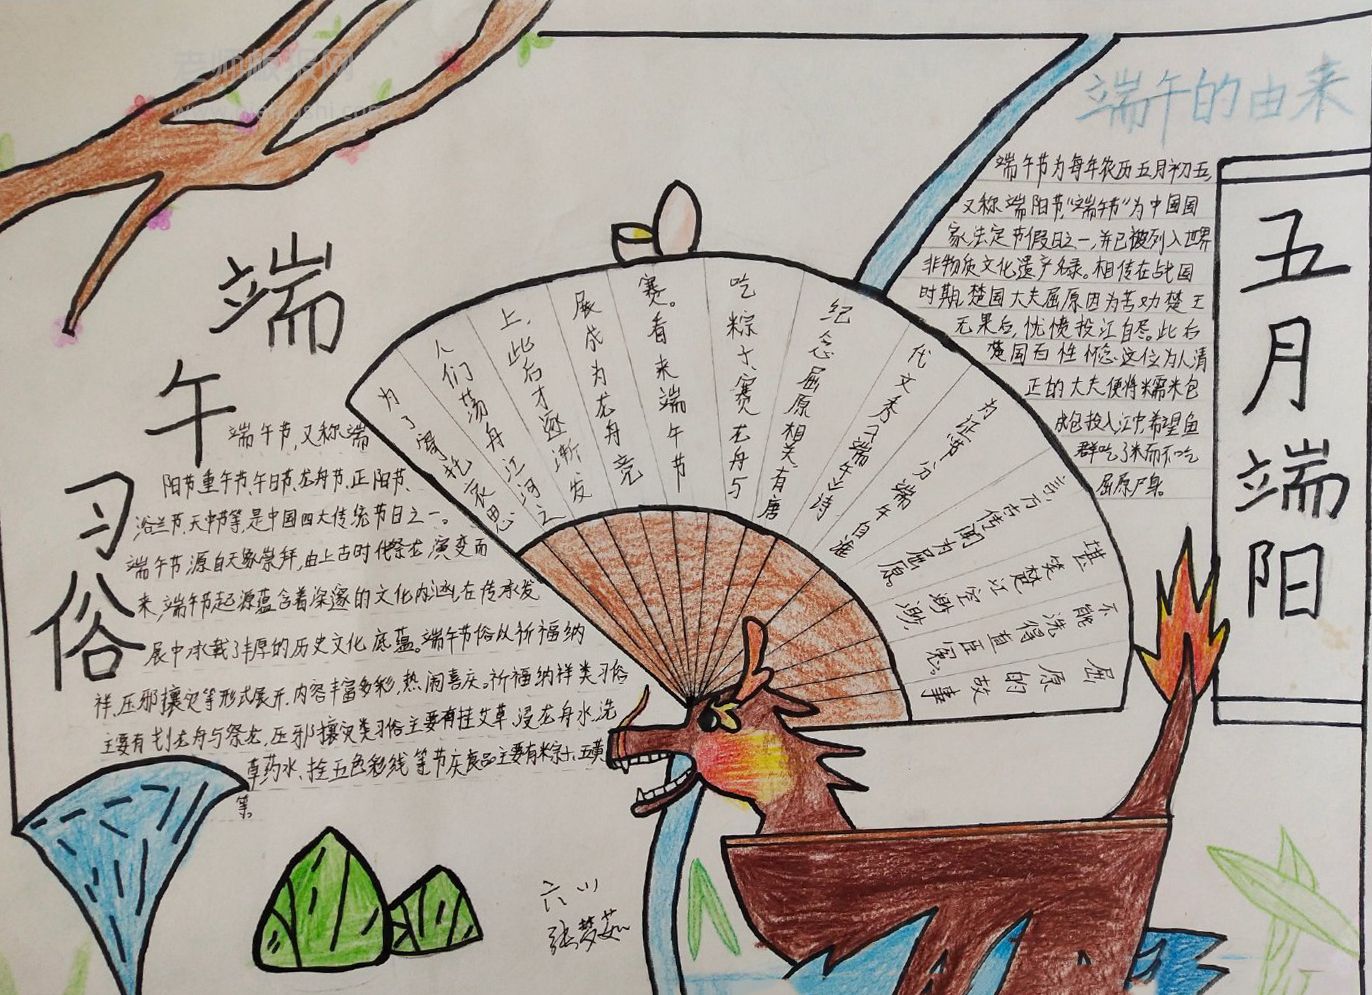 端午的由来
端午节为每年农历五月初五,
又称端阳节."端午节"为中国国
家法定节假日之一,并已被列入世界
非物质文化遗产名录。相传在战国
时期,楚国大夫屈原因为苦劝楚王
无果后,忧愤投江自尽。此后
楚国百姓怀念这位为人清
正的大夫便将糯米包
成包投入江中希望鱼
群吃了米而不吃
屈原尸身。
五月端阳
端午习俗
端午节,又称端
阳节重午节,午日节,龙舟节,正阳节、
浴兰节,天中节等,是中国四大传统节日之一。
端午节源自天象崇拜,由上古时代祭龙演变而
来,端午节起源蕴含着深邃的文化内涵,在传承发
展中承载了丰厚的历史文化底蕴。端午节俗以祈福纳
祥、压邪攘灾等形式展开,内容丰富多彩,热闹喜庆。祈福纳祥类习俗
主要有划龙舟与祭龙,压邪攘灾类习俗主要有挂艾草、浸龙舟水,洗
草药水、拴五色彩线等节庆食品主要有粽子、五黄
等。
屈原的故事
不能洗得直臣冤。
堪笑楚江空渺渺,
言万古传闻为屈原。
为证节分端午自谁
代文秀《端午》诗
纪念屈原相关有唐
吃粽子、赛龙舟与
赛。看来端午节
展成为龙舟竞
上,此后才逐渐发
人们荡舟江河之
为了寄托哀思,
六
张梦茹
老师板报网